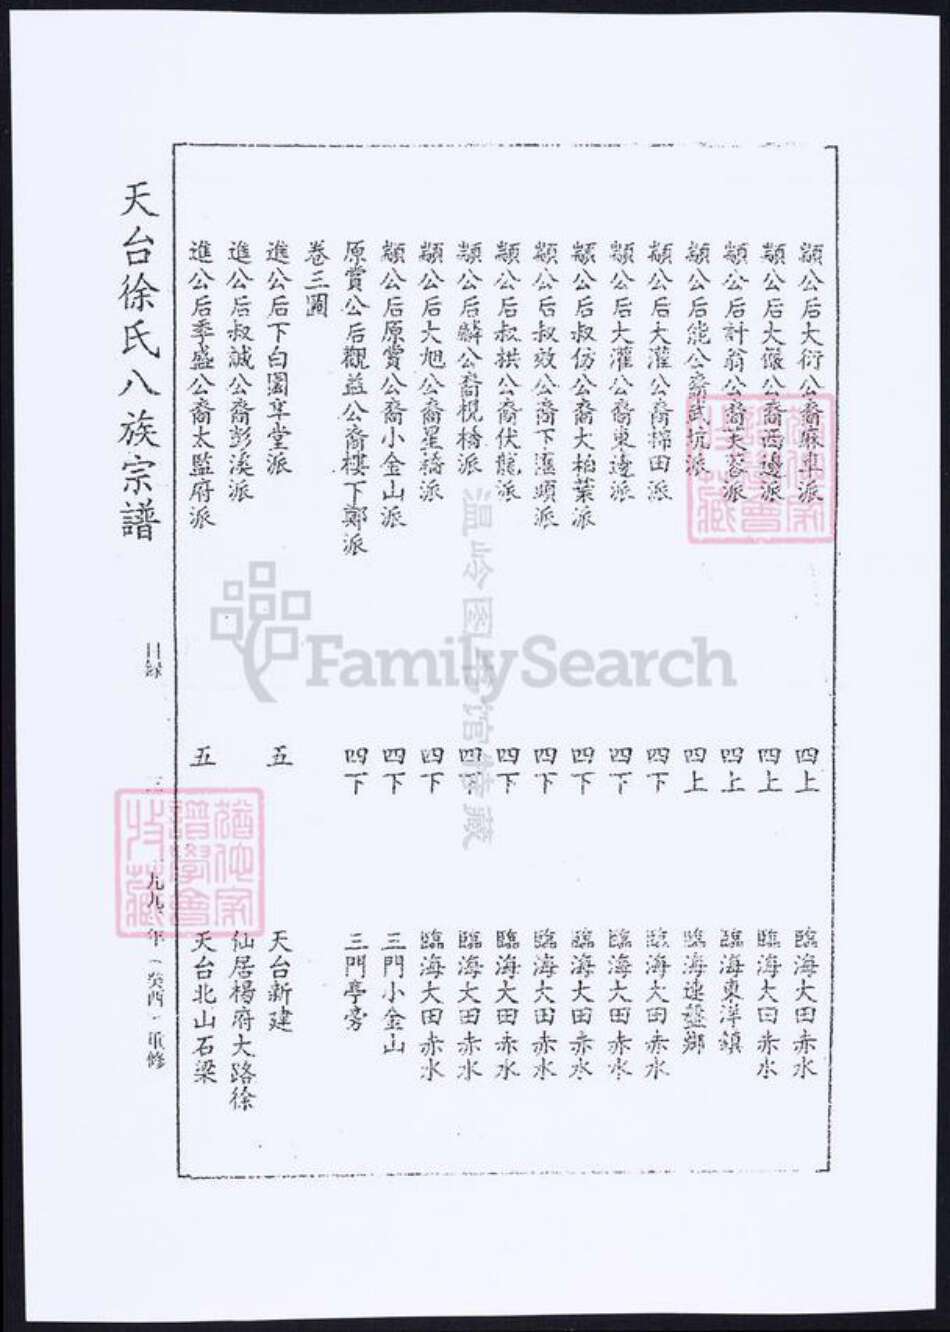 顓公后大衍公裔麻車派 四上 臨海大田赤水
顓公后大儼公裔西邊派 四上 臨海大田赤水
顓公后計翁公裔芙蓉派 四上 臨海東洋鎮
顓公后能公裔武坑派 四上 臨海連盤鄉
顓公后大灌公裔棉田派 四下 臨海大田赤水
顓公后大灌公裔東邊派 四下 臨海大田赤水
顓公后叔仿公裔大柏葉派 四下 臨海大田赤水
顓公后叔效公裔下匯頭派 四下 臨海大田赤水
顓公后叔拱公裔伏龍派 四下 臨海大田赤水
顓公后麟公裔枧橋派 四下 臨海大田赤水
顓公后大旭公裔星橋派 四下 臨海大田赤水
顓公后原賞公裔小金山派 四下 三門小金山
原賞公后觀益公裔樓下鄭派 四下 三門亭旁
卷三圖
進公后下白園草堂派 五 天台新建
進公后叔誠公裔彭溪派 仙居楊府大路徐
進公后季盛公裔太監府派 五 天台北山石梁
天台徐氏八族宗譜 目録 三 一九九 年(癸酉)重修
FamilySearch
温岭图书馆馆藏